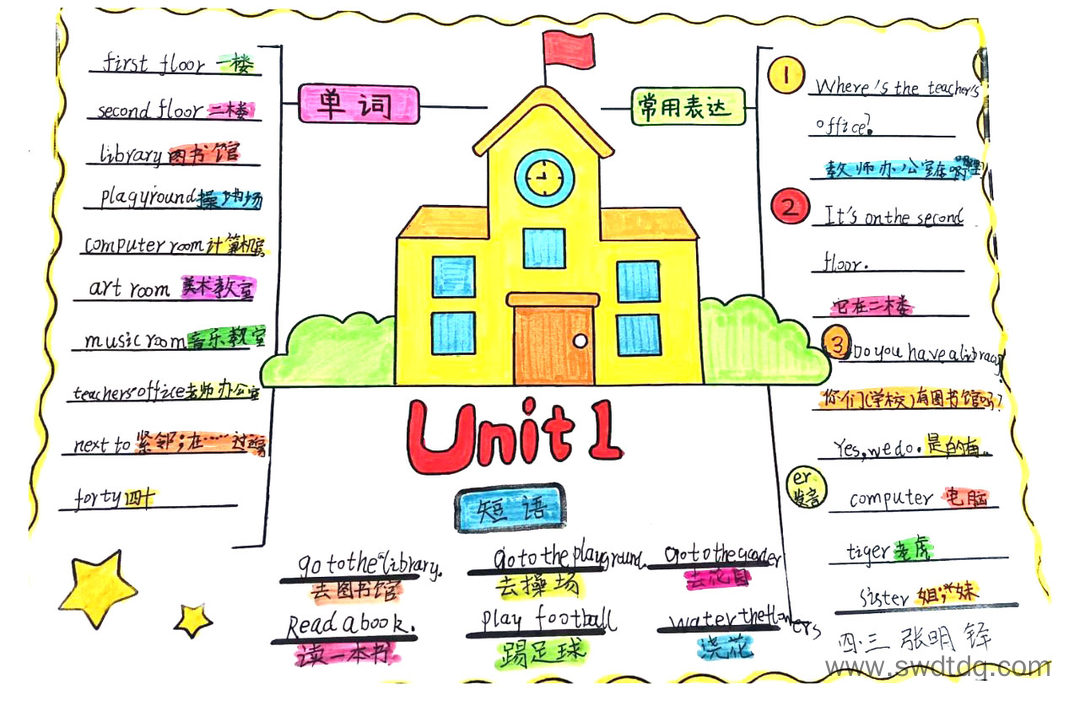 单词
first floor 一楼
second floor 二楼
library 图书馆
playground 操场
computer room 计算机室
art room 美术教室
music room 音乐教室
teachers office 老师办公室
next to 紧邻;在……过
forty 四十
常用表达
1
Where's the teacher's
office?
教师办公室在哪里
2
It's on the second
floor.
它在二楼
3
Do you have a library?
你们(学校)有图书馆吗?
Yes, we do. 是的有..
er
发音
computer 电脑
tiger 老虎
sister 姐;妹
Unit 1
短语
go to the library.
去图书馆
go to the playground.
去操场
Go to the
去花园
Read a book.
读一本书
play football
踢足球
water the
浇花
四.三 张明铎
www.swdtdq.com